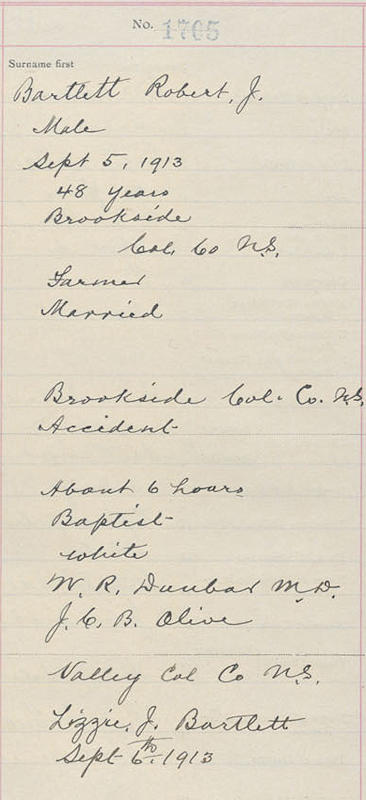 No. 1705
Surname first
Bartlett Robert, J.
Male
Sept 5, 1913
48 years
Brookside
Col. Co N.S.
Farmer
Married
Brookside Col. Co. N.S.
Accident
About 6 hours
Baptist
white
W. R. Dunbar M.D.
J. C. B. Olive
Valley Col Co N.S.
Lizzie. J. Bartlett
Sept 6th. 1913